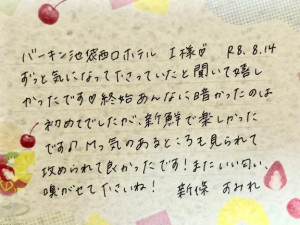 バーキン池袋西口ホテル I様♡ R8.8.14
ずっと気になってくださっていたと聞いて嬉し
かったです♡終始あんなに暗かったのは
初めてでしたが、新鮮で楽しかった
です♫ Mっ気のあるところも見られて
攻められて良かったです!またいい匂い
嗅がせてくださいね! 新條 すみれ